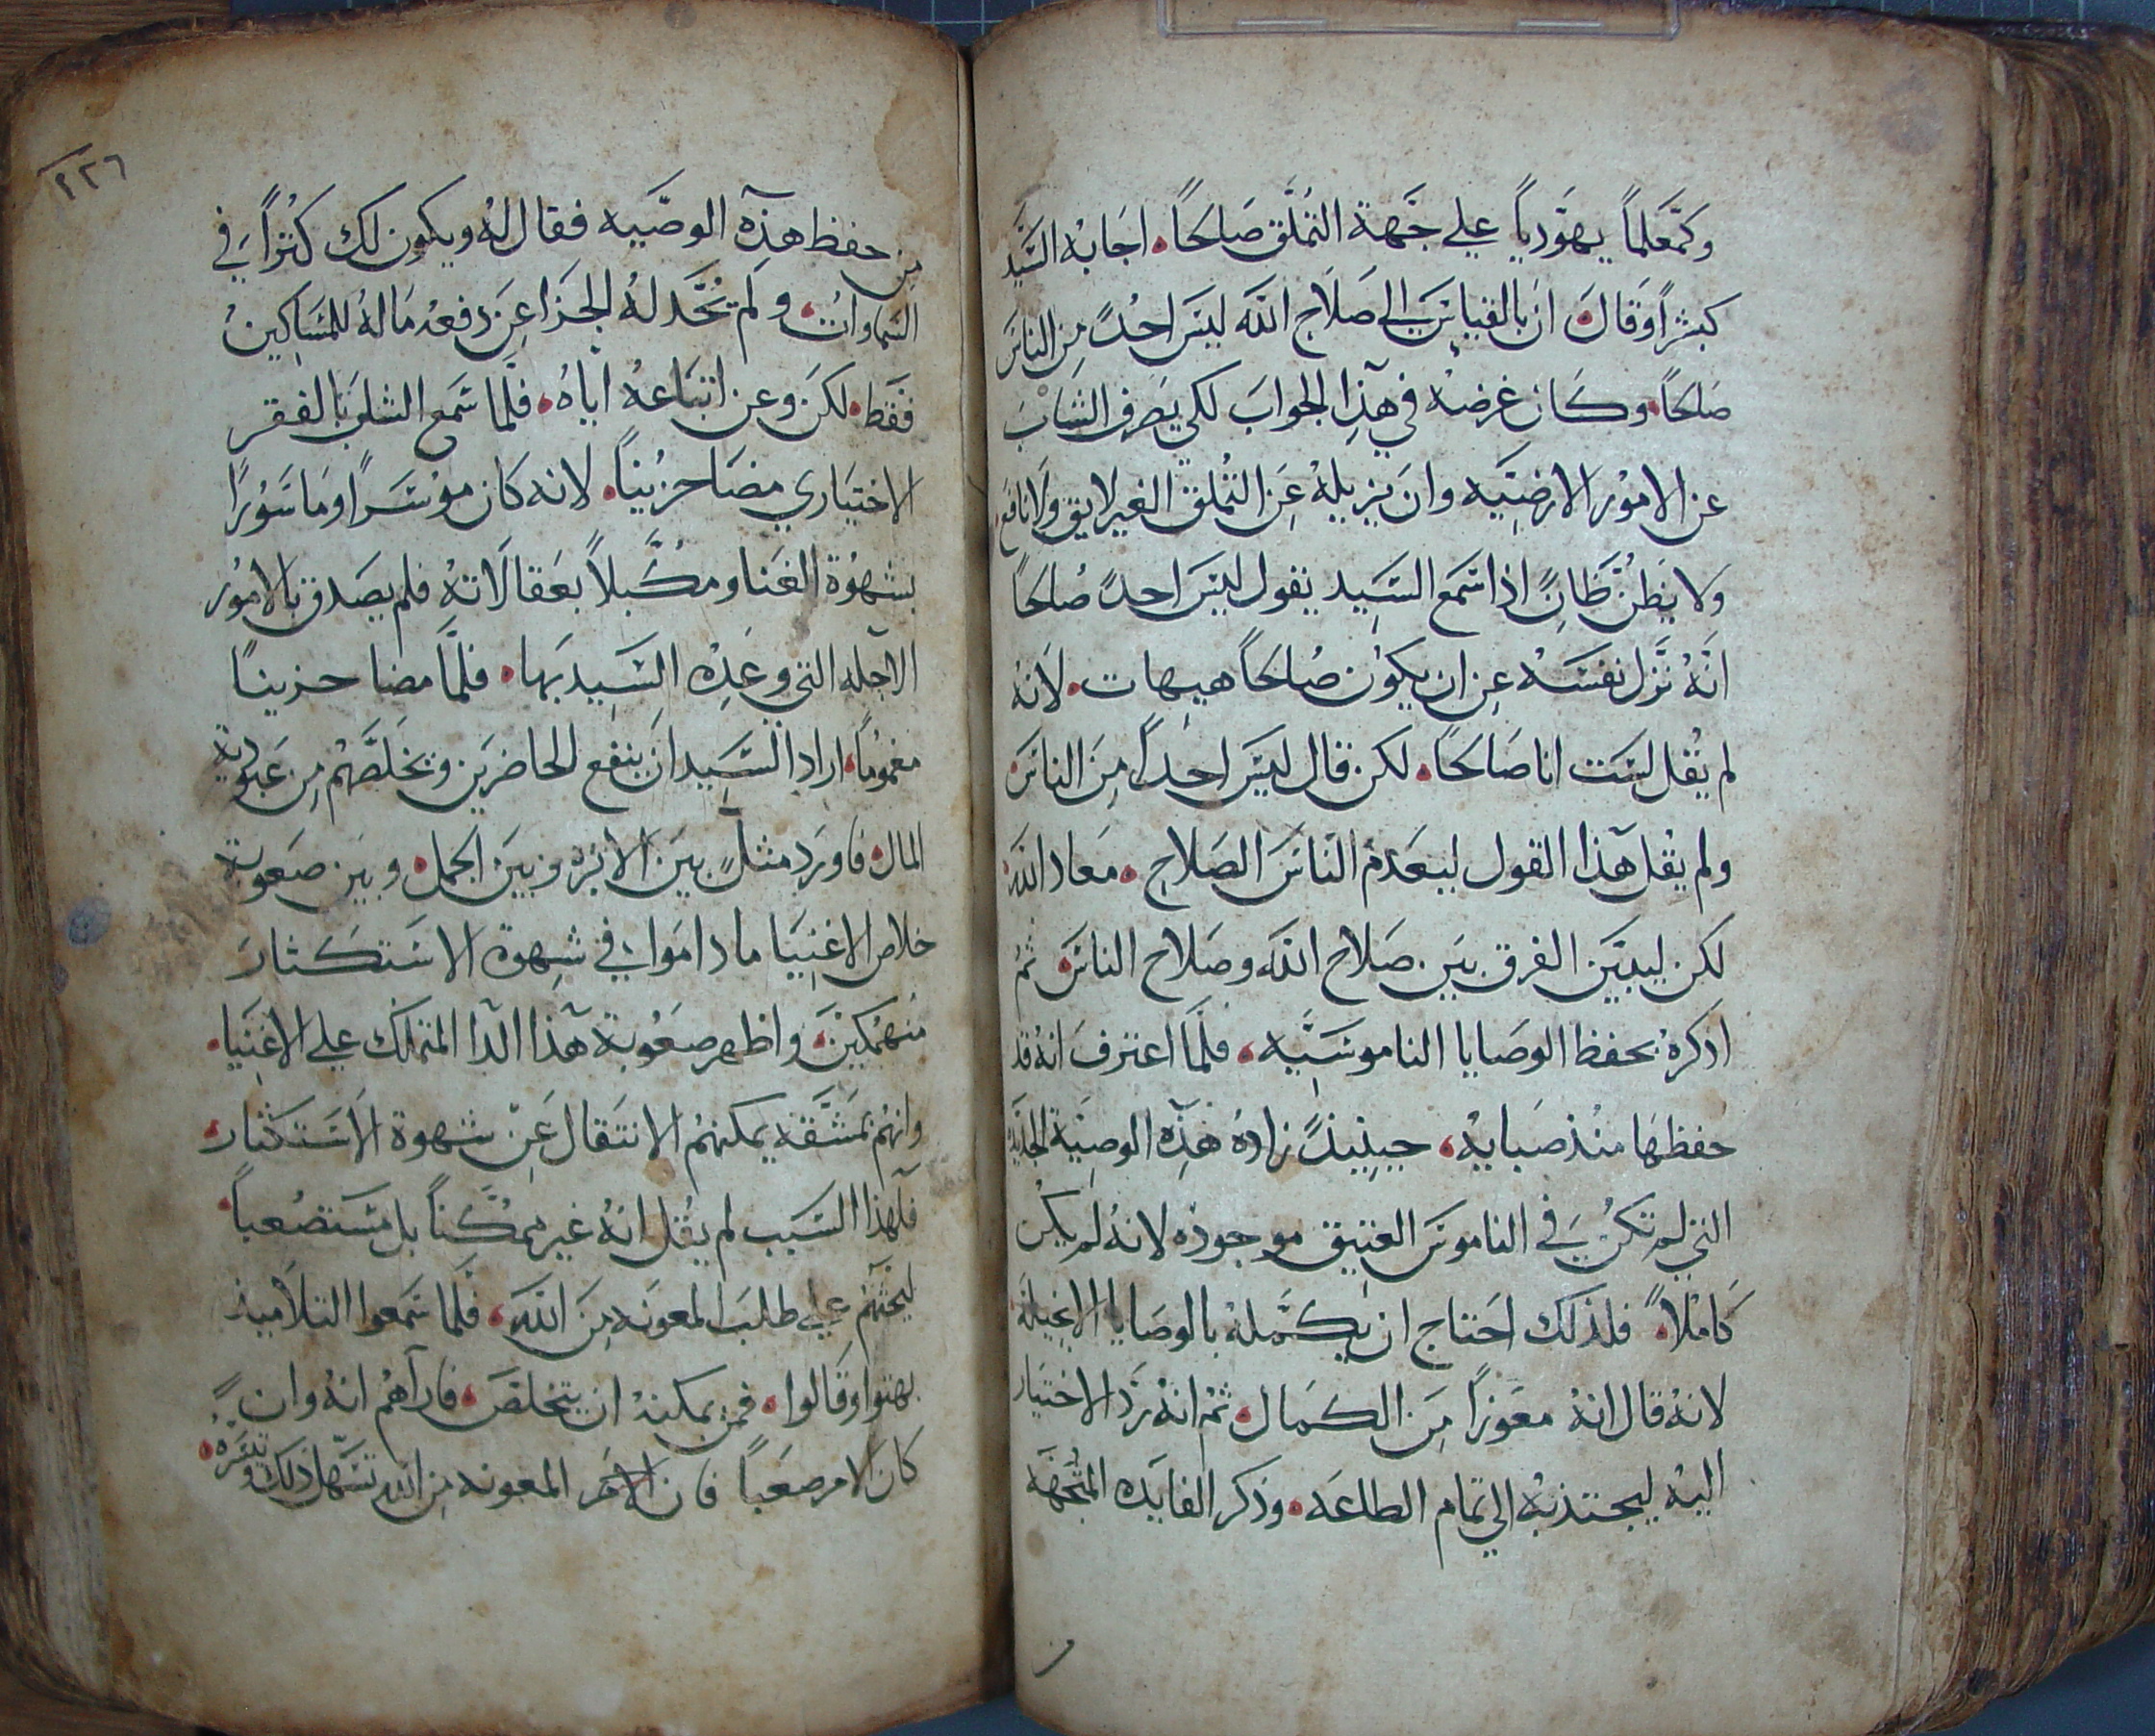 وكمعلماً يهودياً علي جهة التملق صالحاً، اجابه السيد
كبشراً وقال ان بالقياس الي صلاح الله ليس احدً من الناس
صالحاً، وكان غرضه في هذا الجواب لكي يصرف الشاب
عن الامور الارضيه وان يزيله عن التملق الغير لايق ولا نافع
ولا يظن ظانً اذا سمع السيد يقول ليس احدً صالحاً
انه نزل نفسه عن ان يكون صالحاً هيهات، لانه
لم يقل لست انا صالحاً، لكن قال ليس احداً من الناس
ولم يقل هذا القول ليعدم الناس الصلاح، معاد الله
لكن ليبين الفرق بين صلاح الله وصلاح الناس ثم
اذكره بحفظ الوصايا الناموسيه، فلما اعترف انه قد
حفظها منذ صبايه، حينيذً زاده هذه الوصية الجديده
التي لم تكن في الناموس العتيق موجوده لانه لم يكن
كاملاً، فلذلك احتاج ان يكمله بالوصايا الانجيليه
لانه قال انه معوزاً من الكمال، ثم انه رد الاختيار
اليه ليجتذبه الي تمام الطاعه، وذكر الفايده المتجهه
٢٢٦
من حفظ هذه الوصيه فقال له ويكون لك كنزاً في
السماوات، ولم يحد له الجزا عن دفعه ماله للمساكين
فقط، لكن وعن اتباعه اياه، فلما سمع الشاب بالفقر
الاختياري مضا حزيناً، لانه كان موسراً وماسوراً
بشهوة الغنا ومكبلاً بعقالاته فلم يصدق بالامور
الاجله التي وعده السيد بها، فلما مضا حزيناً
مغموماً، اراد السيد ان ينفع الحاضرين ويخلصهم من عبودية
المال فاورد مثلً بين الابره وبين الجمل، وبين صعوبة
خلاص الاغنيا ما داموا في شهوة الاستكثار
منهمكين، واظهر صعوبة هذا الدا المتملك علي الاغنيا،
وانهم بمشقه يمكنهم الانتقال عن شهوة الاستكثار،
فلهذا السبب لم يقل انه غير ممكناً بل مستصعباً،
ليحثهم علي طلب المعونه من الله، فلما سمعوا التلاميذ
بهتوا وقالوا، فمن يمكنه ان يتخلص، فاراهم انه وان
كان الامر صعباً فان المعونه من الله تسهل ذلك وتيسره،